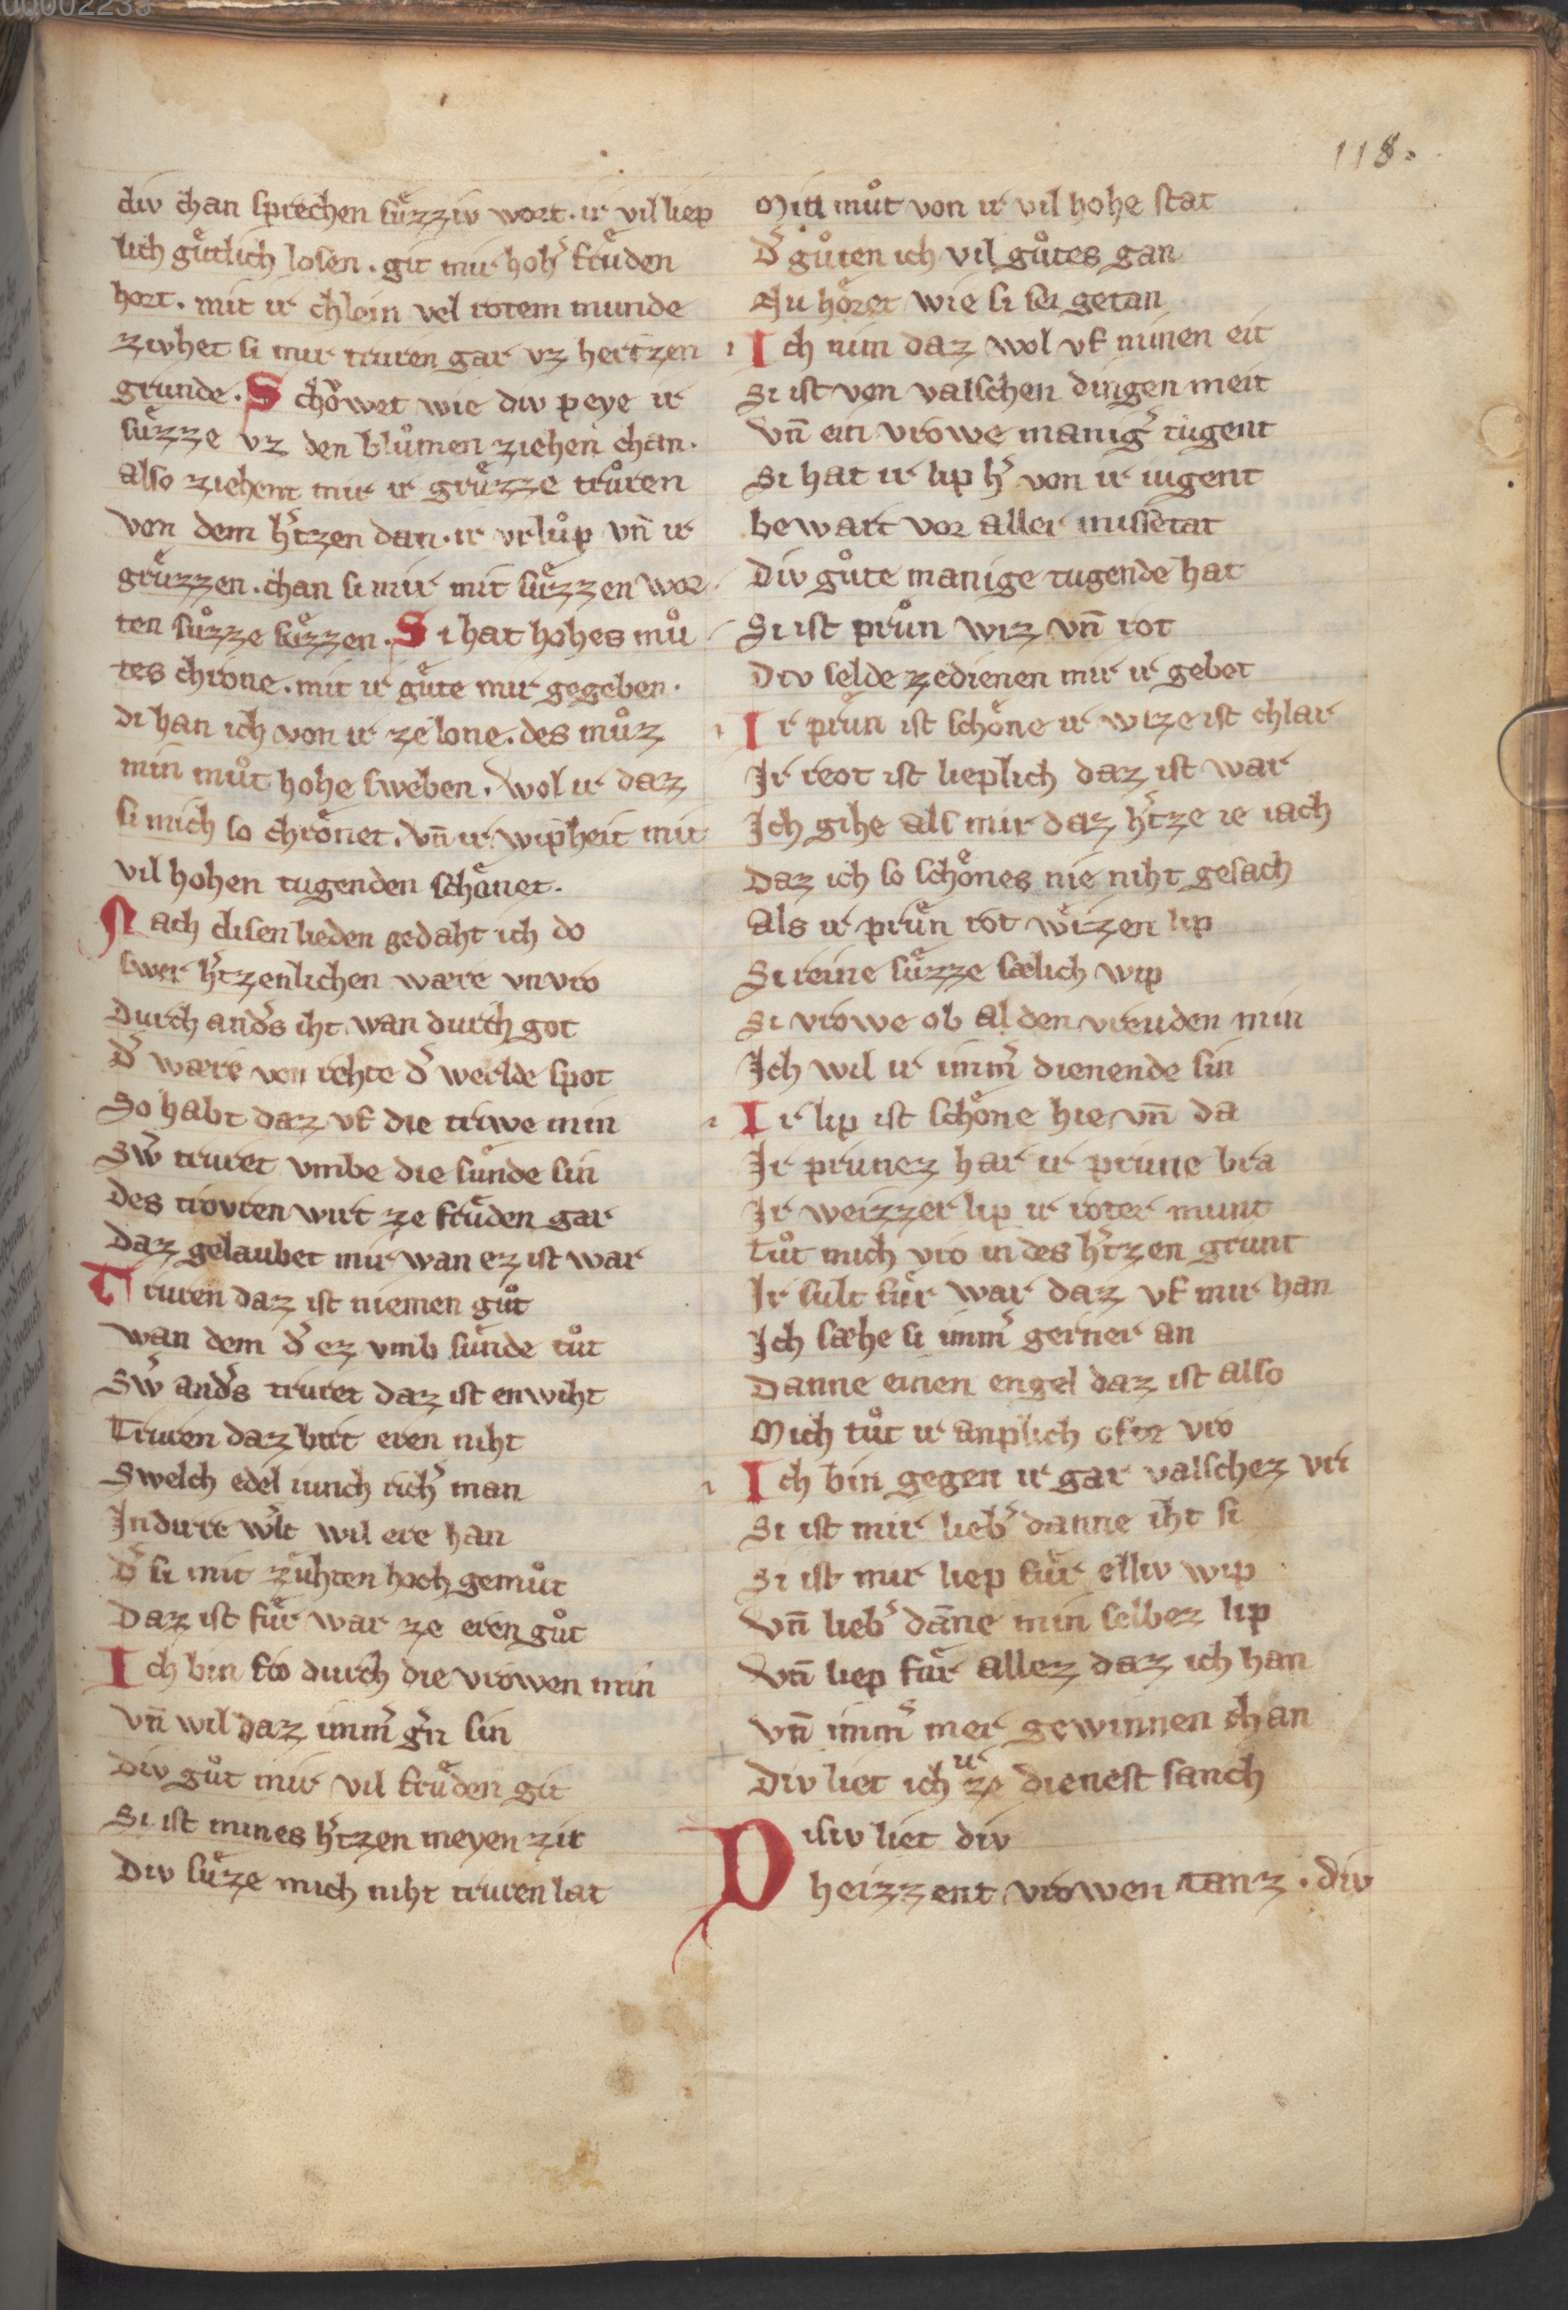 118.
div chan sprechen suͤzziv wort. ir vil liep
lich guͤtlich losen. git mir hohˀ frͤuden
hort. mit ir chlein vel rotem munde
zivhet si mir truren gar vz hertzen
grunde. Schoͮwet wie div peye ir
suͤzze vz den bluͦmen ziehen chan.
also ziehent mir ir gruͤzze truͦren
von dem hˀtzen dan. ir vrluͦp vn̄ ir
gruͤzzen. chan si mir mit suͤzzen wor
ten suͦzze suͤzzen. Si hat hohes muͦ
tes chrone. mit ir guͤte mir gegeben.
di han ich von ir ze lone. des muͦz
min muͦt hohe sweben. wol ir daz
si mich so chroͤnet. vn̄ ir wipheit mit
vil hohen tugenden schoͤnet.
Nach disen lieden gedaht ich do
swer hˀtzenlichen wære vnvro
Durch andˀs iht wan durch got
Dˀ wære von rehte dˀ werlde spot
So habt daz vf die triwe min
Swˀ truret vmbe die suͤnde sin
Des trovren wirt ze frͤuden gar
Daz gelaubet mir wan ez ist war
Truren daz ist niemen guͦt
wan dem dˀ ez vmb suͤnde tuͦt
Swˀ andˀs truret daz ist enwiht
Truren daz birt eren niht
Swelch edel iunch richˀ man
In dirre wˀlt wil ere han
Dˀ si mit zuͤhten hoch gemuͦt
Daz ist fuͤr war ze eren guͦt
Ich bin fro durch die vrowen min
Vn̄ wil daz immˀ gˀn sin
Div guͦt mir vil frͤuden git
Si ist mines hˀtzen meyen zit
Div suͤze mich niht truren lat
Min muͦt von ir vil hohe stat
Dˀ guͦten ich vil guͦtes gan
Nu hoͤret wie si sei getan
Ich nim daz wol vf minen eit
Si ist von valschen dingen meit
Vn̄ ein vrowe manigˀ tugent
Si hat ir lip hˀ von ir iugent
bewart vor aller missetat
Div guͦte manige tugende hat
Si ist pruͦn wiz vn̄ rot
Div selde ze dienen mir ir gebot
Ir pruͤn ist schoͤne ir wize ist chlar
Ir reot ist lieplich daz ist war
Ich gihe als mir daz hˀtze ie iach
Daz ich so schoͤnes nie niht gesach
Als ir pruͤn rot wizzen lip
Si reine suͤzze sælich wip
Si vrowe ob al den vreuden min
Ich wil ir immˀ dienende sin
Ir lip ist schoͤne hie vn̄ da
Ir prunez har ir prune bra
Ir weizzer lip ir roter munt
Tuͦt mich vro in des hˀtzen grunt
Ir sult fuͤr war daz vf mir han
Ich sæhe si immˀ gerner an
Danne einen engel daz ist also
Mich tuͦt ir anplich ofte vro
Ich bin gegen ir gar valschez vri
Si ist mir liebˀ danne iht si
Si ist mir liep fuͤr elliv wip
Vn̄ liebˀ dāne min selbez lip
Vn̄ liep fuͤr allez daz ich han
Vn̄ immˀ mer gewinnen chan
Div liet ich ir ze dienest sanch
Disiv liet div
heizzent vrowen tanz. div